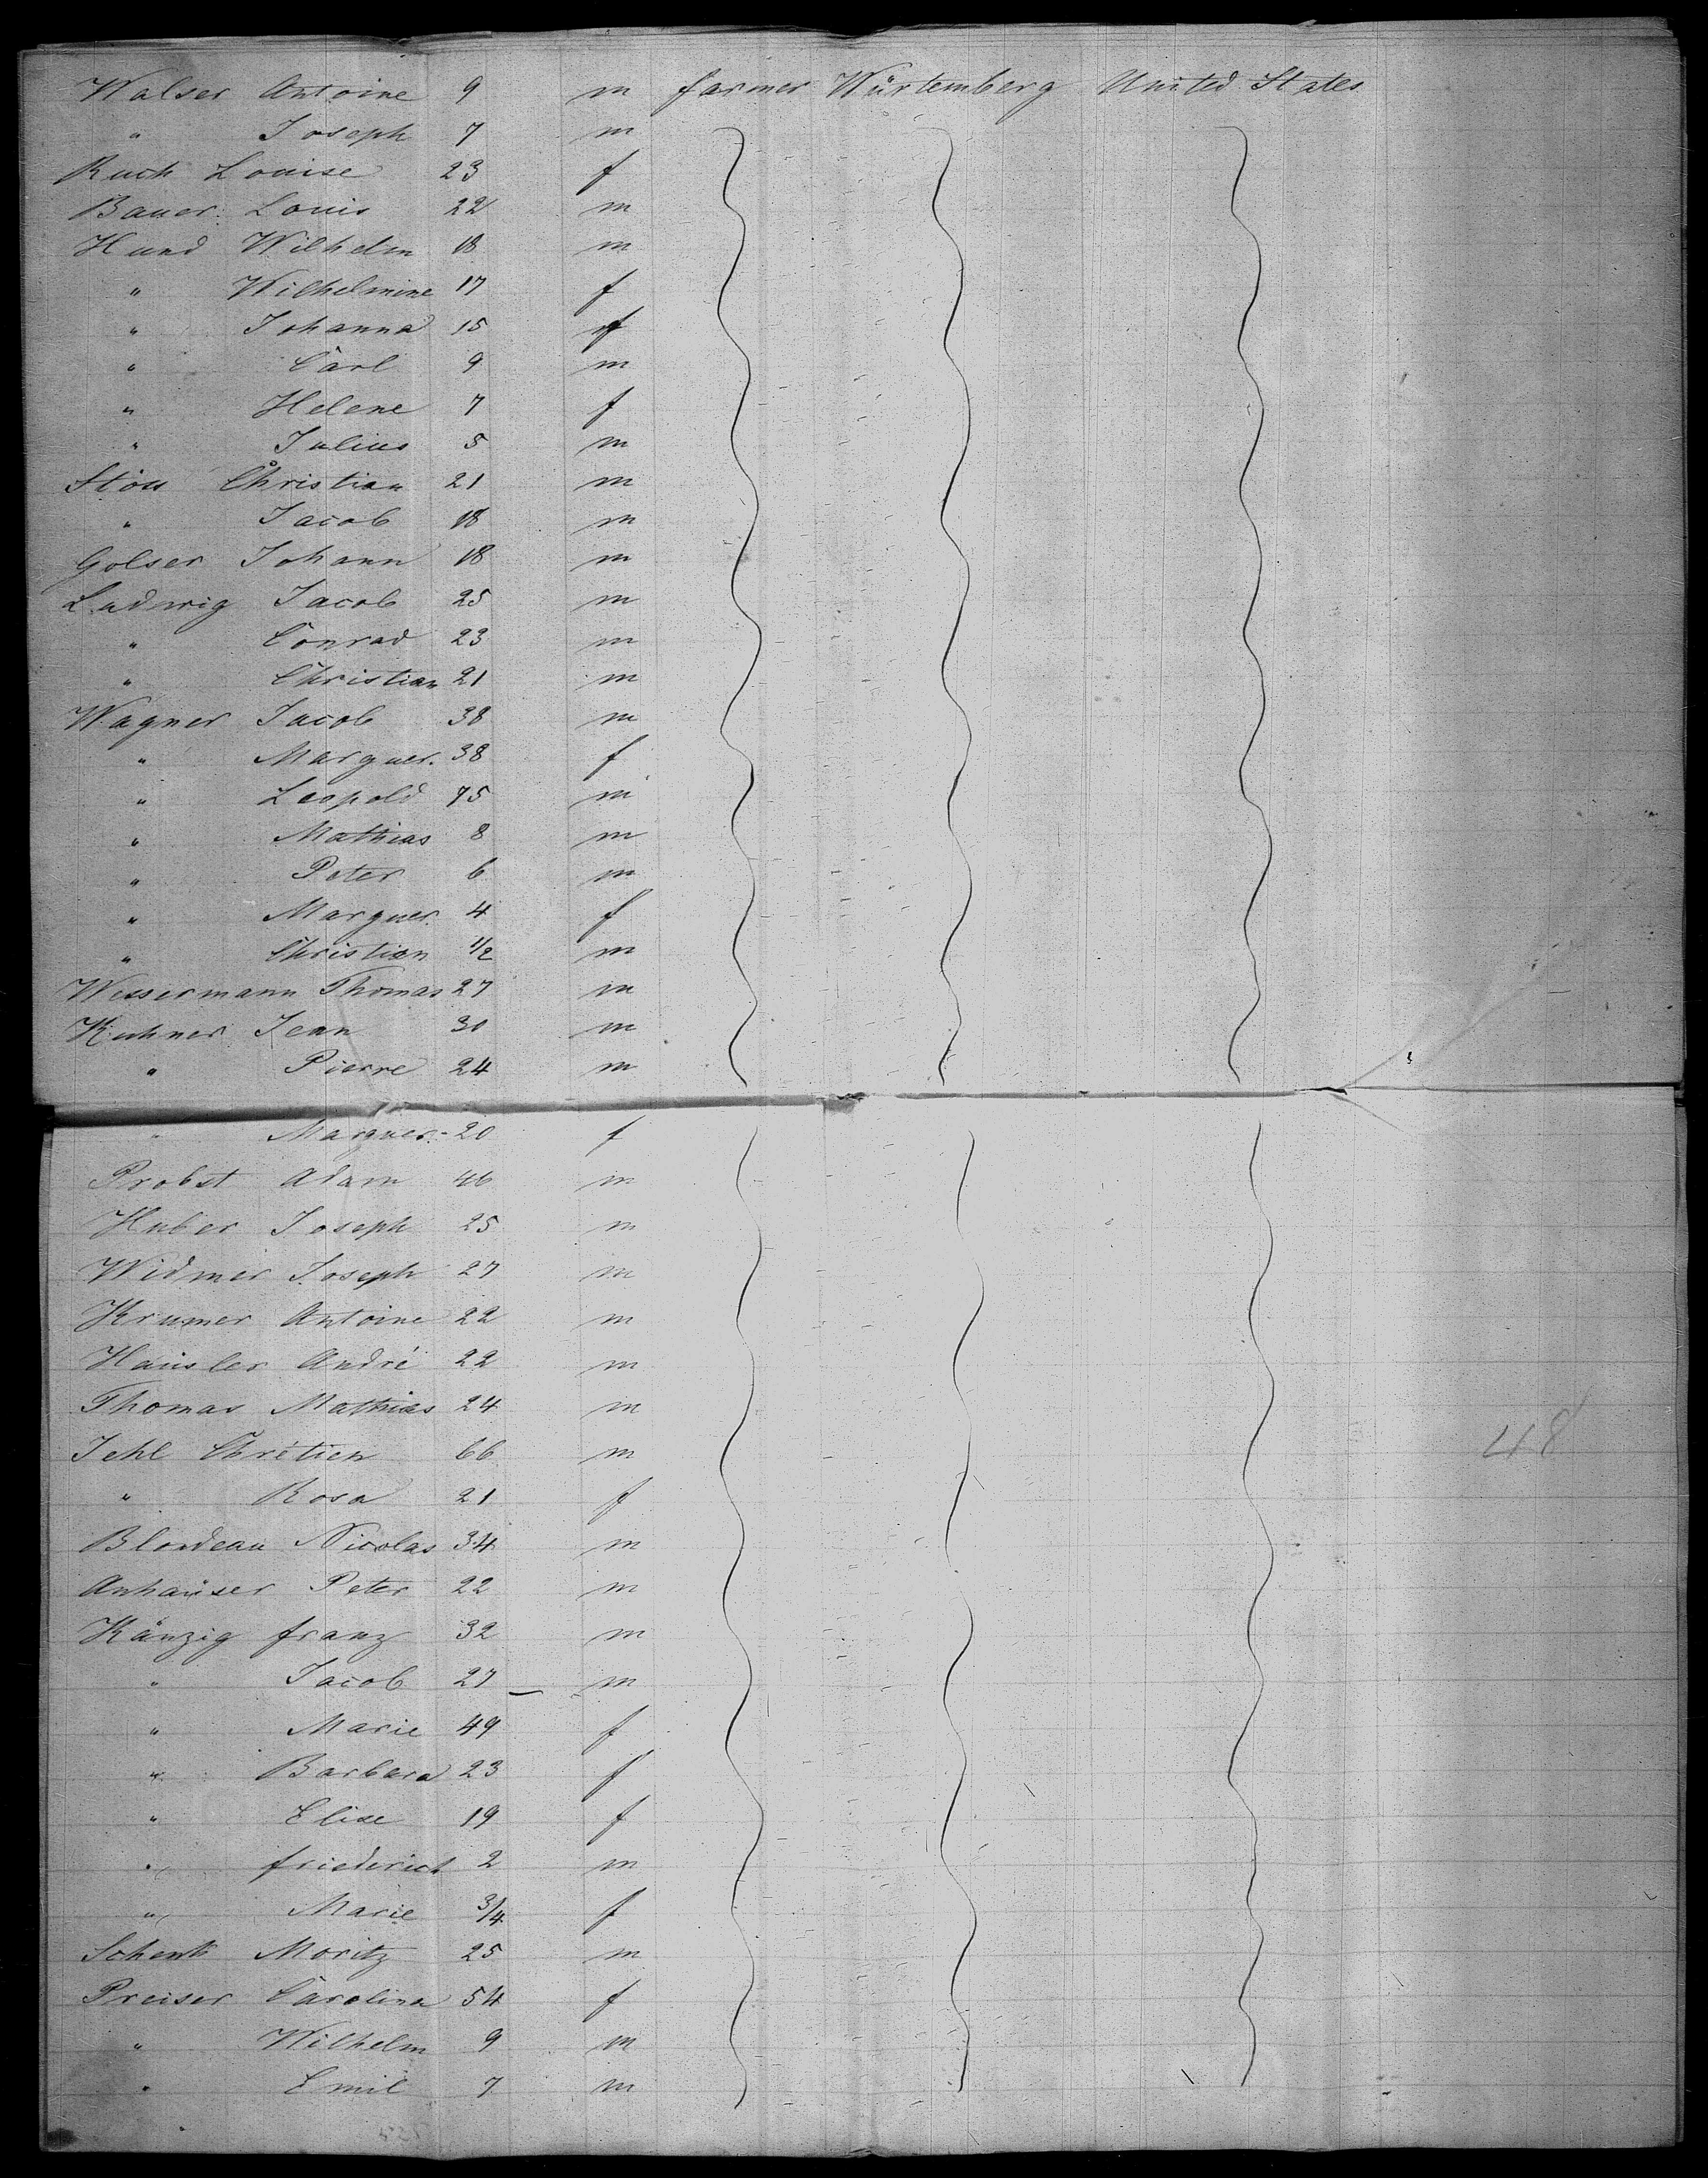 Walser Antoine 9 m farmer Würtemberg United States
" Joseph 7 m
Ruch Louise 23 f
Bauer Louis 22 m
Hund Wilhelm 18 m
" Wilhelmine 17 f
" Johanna 15 f
" Carl 9 m
" Helene 7 f
" Julius 5 m
Christian 21 m
" Jacob 18 m
Golser Johann 18 m
Ludwig Jacob 25 m
" Conrad 23 m
" Christian 21 m
Wagner Jacob 38 m
" Marguer. 38 f
" Leopold m
" Mathias 8 m
" Peter 6 m
" Marguer. 4 f
" Christian 1/2 m
Wessermann Thomas 27 m
Kuhner Jean 30 m
" Pierre 24 m
" Marguer. 20 f
Probst Adam 46 m
Huber Joseph 25 m
Widmer Joseph 27 m
Krumer Antoine 22 m
Haüsler André 22 m
Thomas Mathias 24 m
Jehl Chrétien 66 m
" Rosa 21 f
Blondeau Nicolas 34 m
Anhaüser Peter 22 m
Känzig franz 32 m
" Jacob 27 – m
" Marie 49 f
" Barbara 23 f
" Elise 19 f
" friederich 2 m
" Marie 3/4 f
Schenk Moritz 25 m
Preiser Carolina 54 f
" Wilhelm 9 m
" Emil 7 m
48